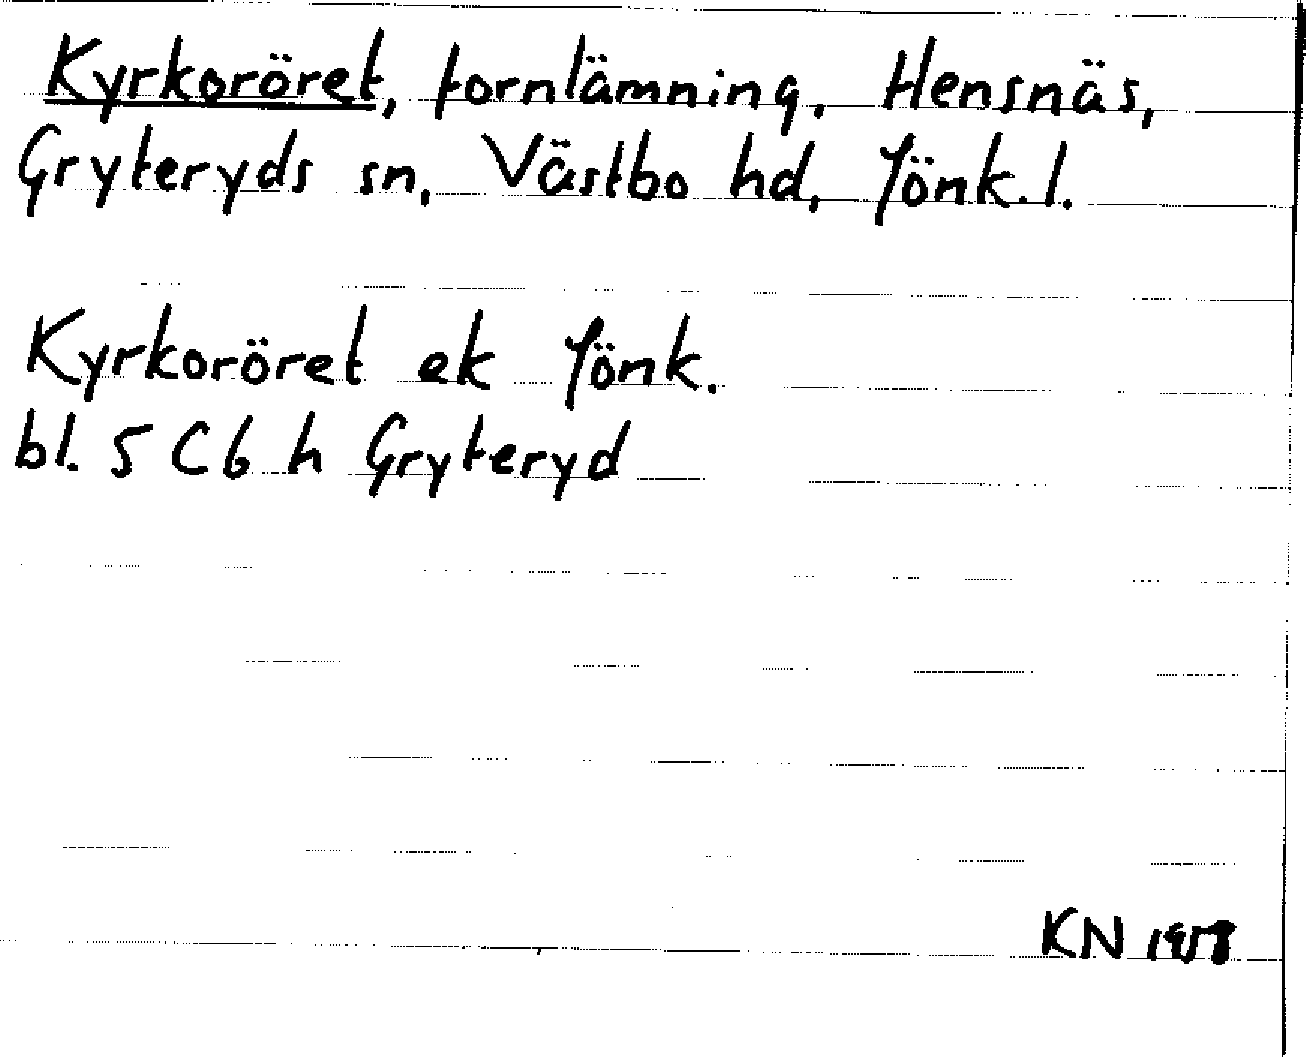 Kyrkoröret, fornlämning, Hensnäs,
Gryteryds sn, Västbo hd, Jönk. l.
Kyrkoröret ek Jönk.
bl. 5 C 6 h Gryteryd
KN